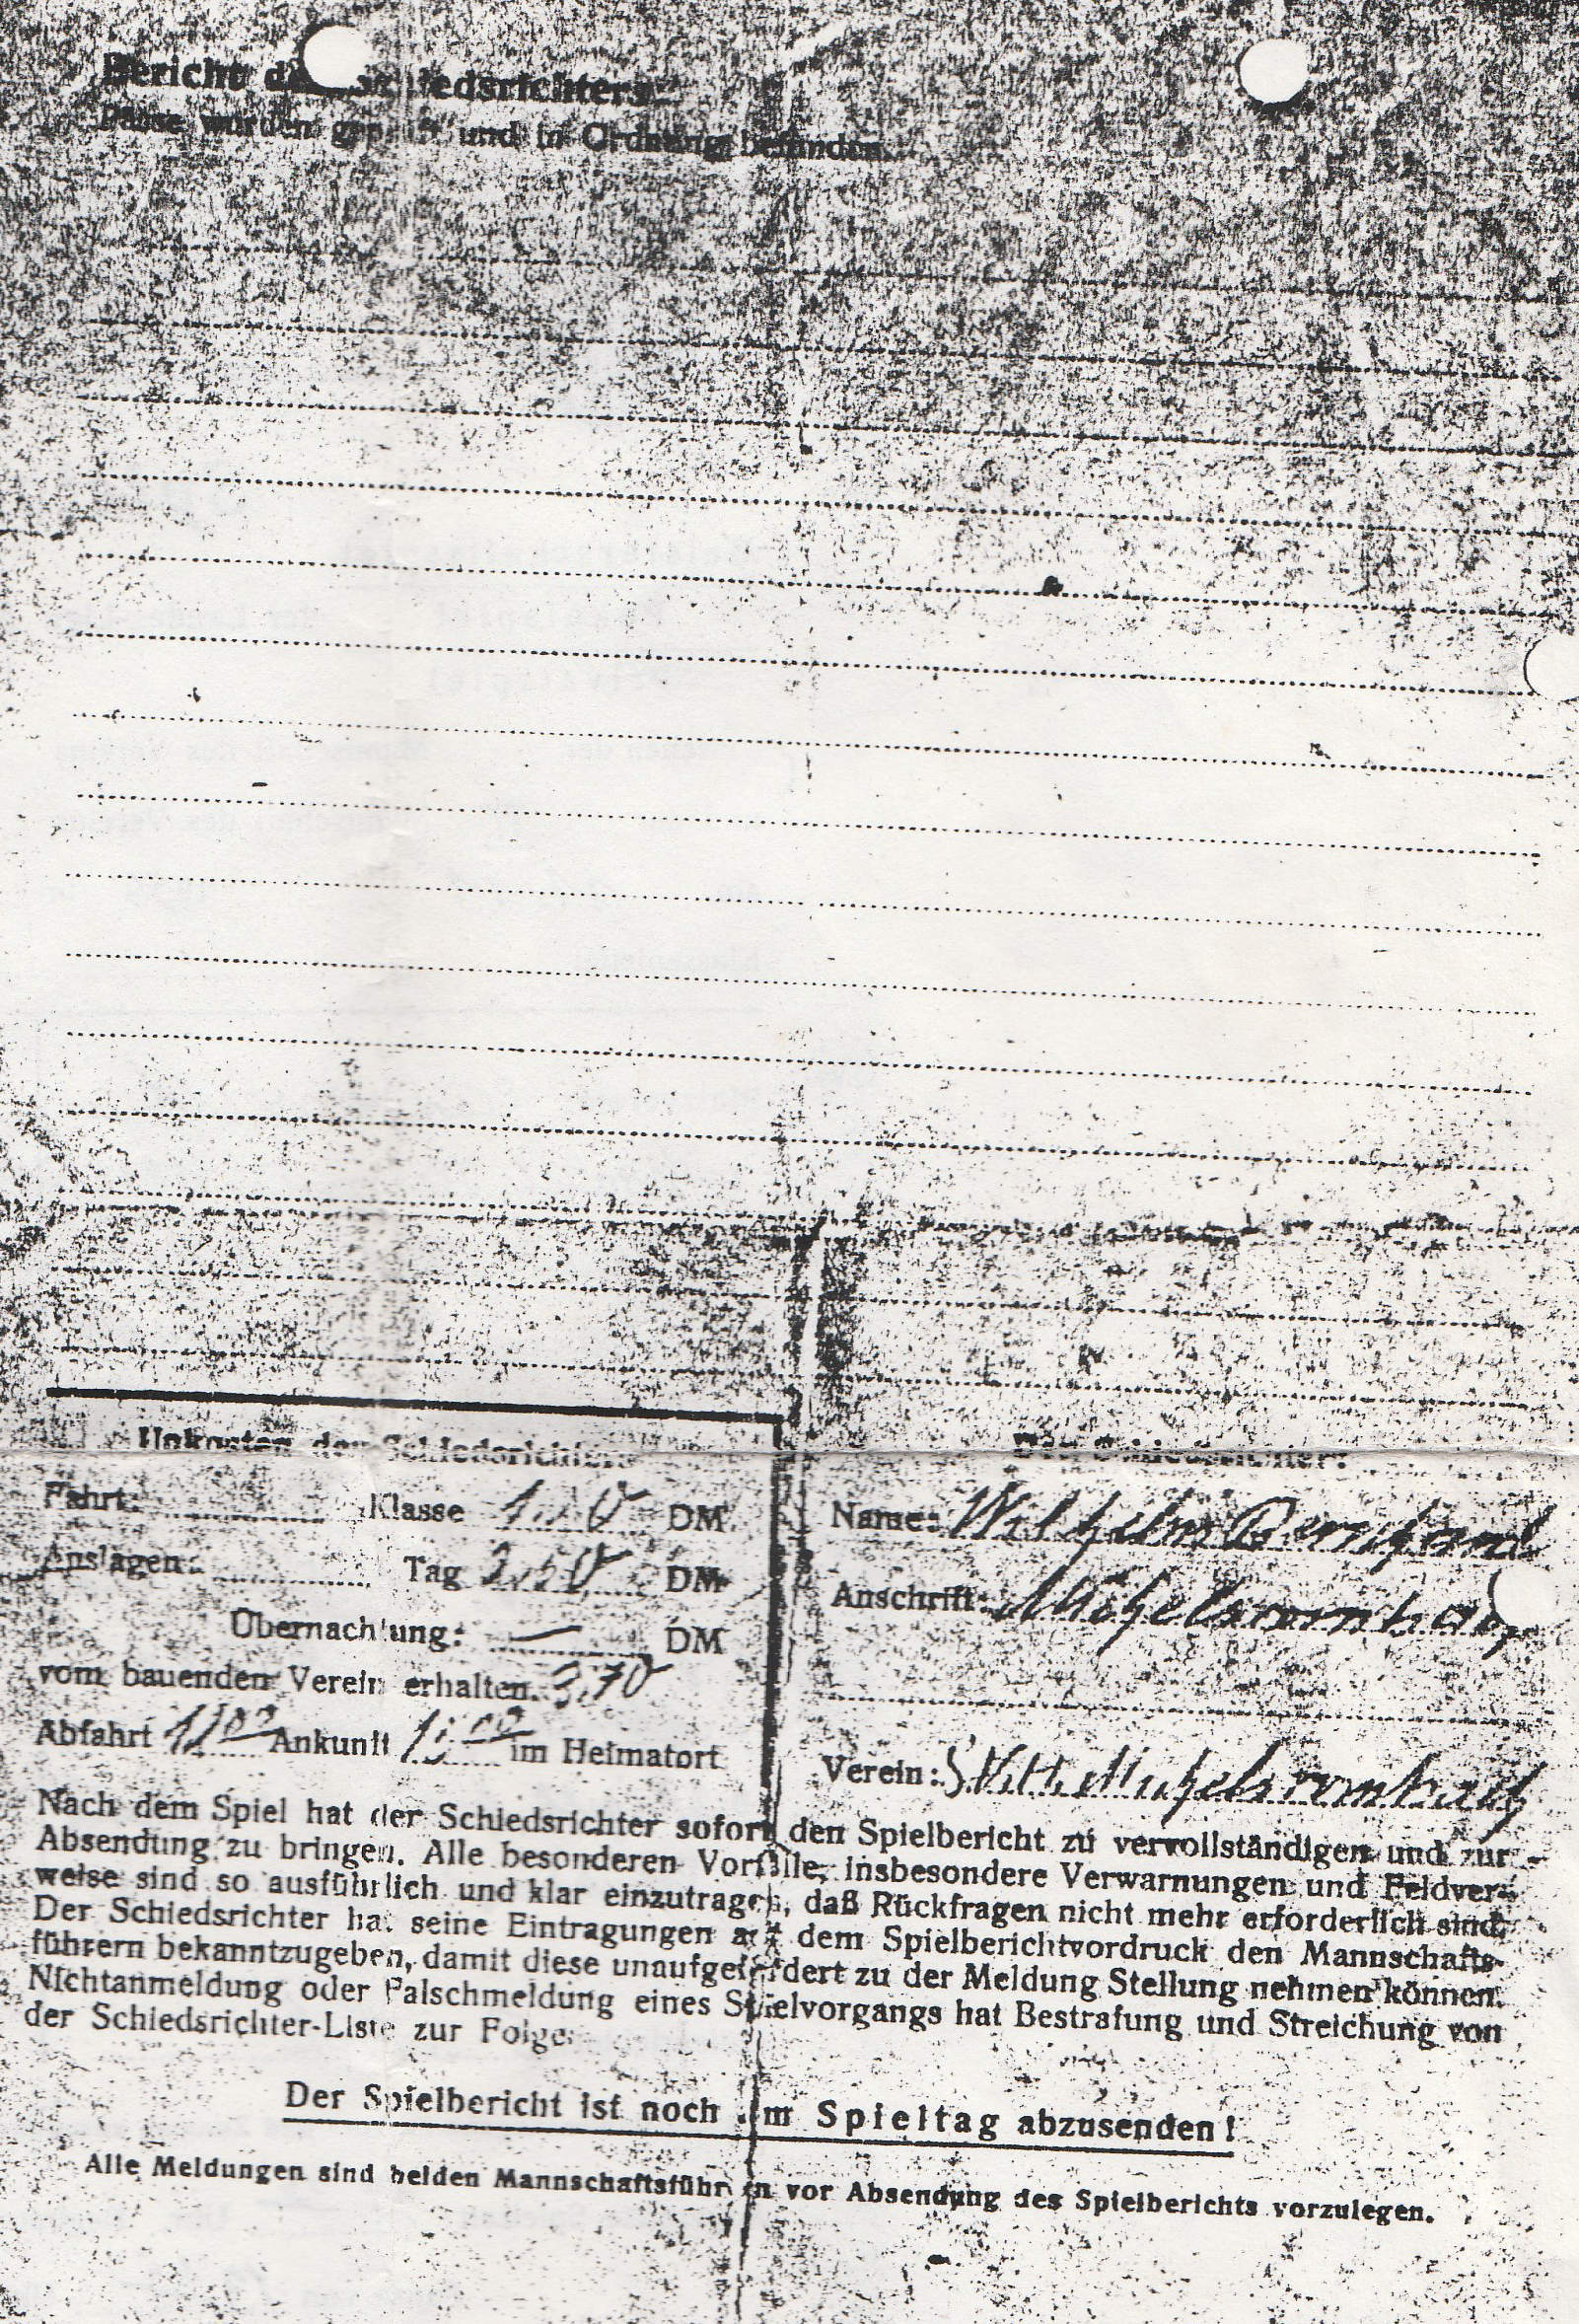 Bericht des Schiedsrichters
Pässe wurden geprüft und in Ordnung befunden.
Unkosten des Schiedsrichters
Der Schiedsrichter:
Fahrt: Klasse DM
Name: Wilhelm Bernhard
Auslagen: Tag 2,50 DM
Anschrift: Michelsrombach
Übernachtung: — DM
vom bauenden Verein erhalten. 3,70
Abfahrt Ankunft im Heimatort
Verein: Michelsrombach
Nach dem Spiel hat der Schiedsrichter sofort den Spielbericht zu vervollständigen und zur
Absendung zu bringen. Alle besonderen Vorfälle, insbesondere Verwarnungen und Feldver-
weise sind so ausführlich und klar einzutragen, daß Rückfragen nicht mehr erforderlich sind.
Der Schiedsrichter hat seine Eintragungen auf dem Spielberichtvordruck den Mannschafts-
führern bekanntzugeben, damit diese unaufgefordert zu der Meldung Stellung nehmen können.
Nichtanmeldung oder Falschmeldung eines Spielvorgangs hat Bestrafung und Streichung von
der Schiedsrichter-Liste zur Folge.
Der Spielbericht ist noch am Spieltag abzusenden!
Alle Meldungen sind beiden Mannschaftsführern vor Absendung des Spielberichts vorzulegen.